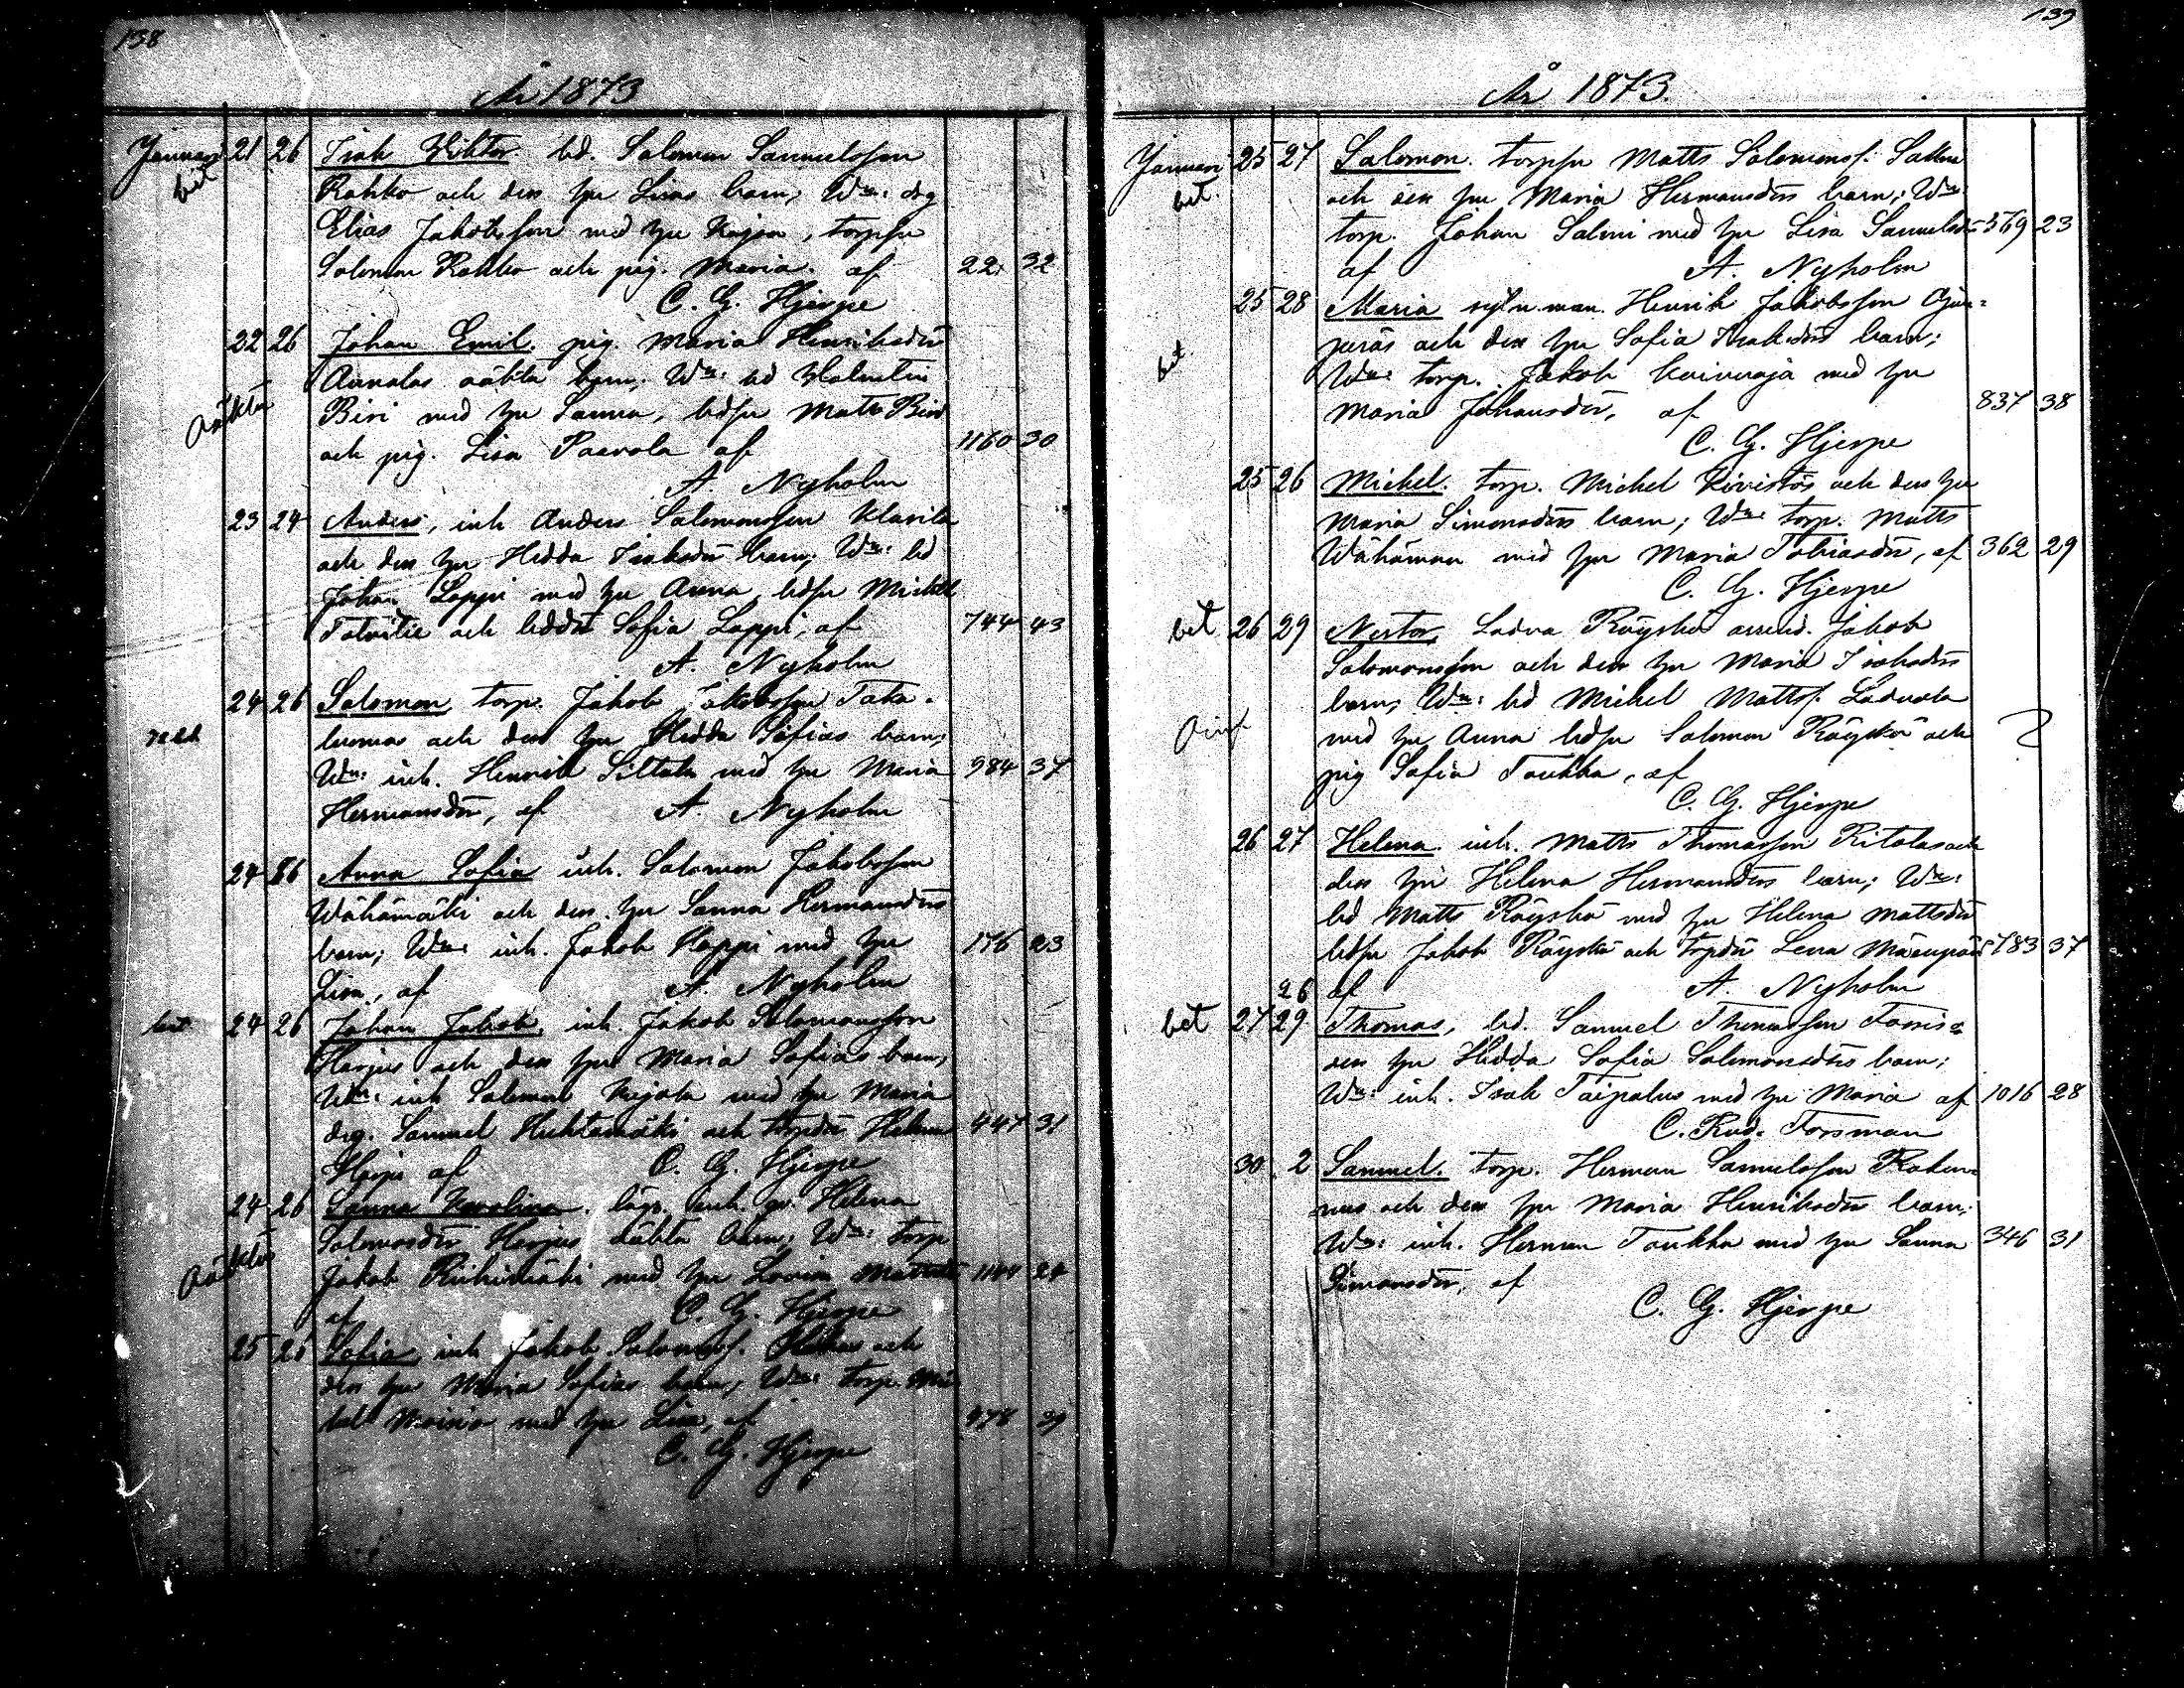 138
År 1873
Januari 21 26 Isak Viktor bd. Salomon Samuelsson
bet Rahko och des hu Lisas barn; Wn: drg
Elias Jakobsson med hu Kajsa, torpsn
Salomon Rahko och pig. Maria. af 22. 32
C. G. Hjerpe
22 26 Johan Emil. pig. Maria Henriksdr
Annalas oäkta barn; Wn: bd Valentin
Oäkta Biri med hu Sanna, bdsn Matts Biri
och pig. Lisa Paavola af 1160 30
A. Nyholm
23 24 Anders, inh Anders Salomonsson Klavila
och des hu Hedda Isaksdrs barn; Wn: bd
Johan Lappi med hu Anna, bdsn Michel
Tolvitie och bddtr Sofia Lappi, af 744 43
A. Nyholm
24 26 Salomon torp. Jakob Jakobsson Taka-
luoma och des hu Hedda Sofias barn;
Wn: inh. Henrik Siltala med hu Maria 984 37
Hermansdr, af A. Nyholm
24 26 Anna Sofia inh. Salomon Jakobsson
Wähämäki och des hu Sanna Hermansdrs
barn; Wn: inh. Jakob Hoppi med hu 176 23
Lisa, af A. Nyholm
bet 24 26 Johan Jakob, inh. Jakob Salomonsson
Harjus och des hu Maria Sofias barn;
Wn: inh Salomon Kujala med hu Maria
drg. Samuel Huhtamäki och torpdr Helena 447 31
Harju af C. G. Hjerpe
24 26 Sanna Karolina. lösp. inh. qv. Helena
Salomonsdr Harjus oäkta barn; Wn: torp
Oäkta Jakob Riihimäki med hu Lovisa Mattsdr 1144 24
af C. G. Hjerpe
25 26 Sofia, inh Jakob Salomons. och
des hu Maria Sofias barn; Wn: torp. Mi-
chel med hu Lisa, af 478 39
C. G. Hjerpe
139
År 1873.
Januari 25 27 Salomon. torpsn Matts Salomons.
bet. och des hu Maria Hermansdrs barn; Wn:
torp. Johan Salmi med hu Lisa Samuelsdr 569 23
af A. Nyholm
25 28 Maria nyln. man. Henrik Jakobsson Ojan-
peräs och des hu Sofia Isaksdrs barn;
bet. Wn: torp. Jakob Koivuoja med hu
Maria Johansdr, af 837 38
C. G. Hjerpe
25 26 Michel. torp. Michel Kivistös och des hu
Maria Simonsdrs barn; Wn: torp. Matts
Wähämaa med hu Maria Tobiasdr, af 362 29
C. G. Hjerpe
bet 26 29 Nestor, Ladva Röyskö arrend. Jakob
Salomonsson och des hu Maria Isaksdrs
barn; Wn: bd Michel Mattss. Laduala
med hu Anna bdsn Salomon Röyskö och
pig Sofia Toukka, af
C. G. Hjerpe
26 27 Helena. inh. Matts Thomasson Ritolas och
des hu Helena Hermansdrs barn; Wn:
bd Matts Röyskö med hu Helena Mattsdr
bdsn Jakob Röyskö och torpdr Lena 783 37
26 af A. Nyholm
bet 27 29 Thomas, bd. Samuel Thomasson
des hu Hedda Sofia Salomonsdrs barn;
Wn: inh. Isak Taipalus med hu Maria af 1016 28
C. Rud. Forsman
30 2 Samuel. torp. Herman Samuelsson
och des hu Maria Henriksdrs barn;
Wn: inh. Herman Toukka med hu Sanna 346 31
Simonsdr, af
C. G. Hjerpe